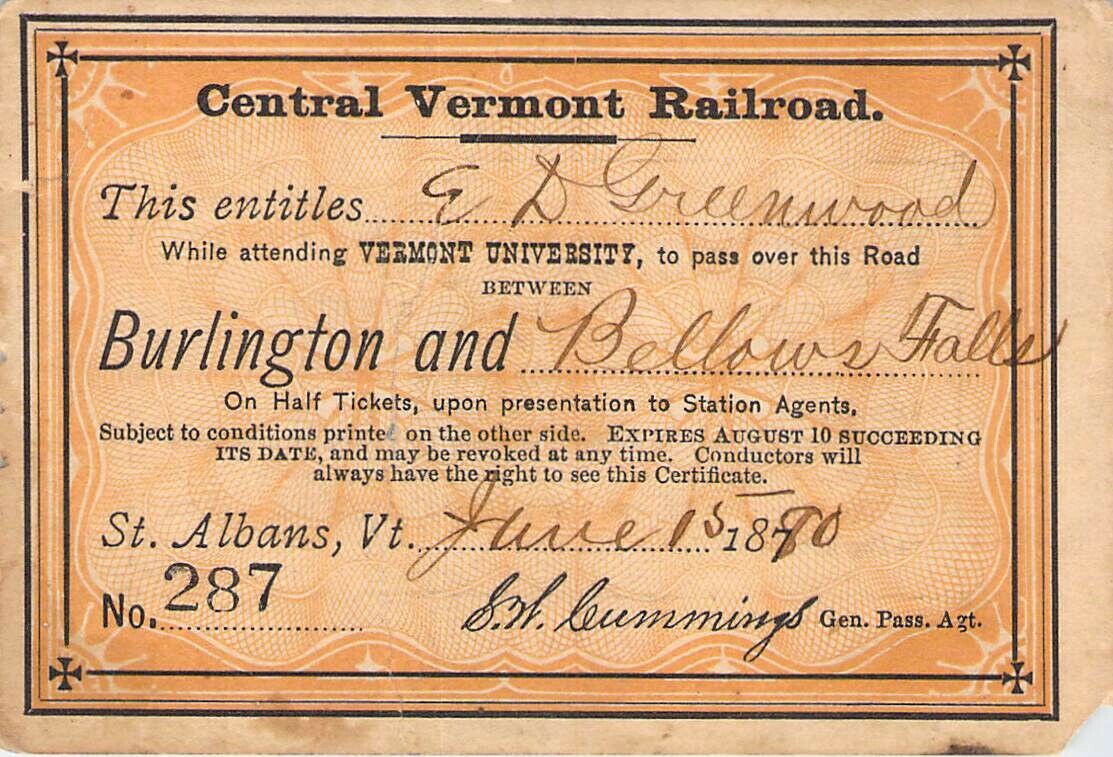 Central Vermont Railroad.
This entitles E D Greenwood
While attending VERMONT UNIVERSITY, to pass over this Road
BETWEEN
Burlington and Bellows Falls
On Half Tickets, upon presentation to Station Agents.
Subject to conditions printed on the other side. EXPIRES AUGUST 10 SUCCEEDING
ITS DATE, and may be revoked at any time. Conductors will
always have the right to see this Certificate.
St. Albans, Vt. June 15 1880
No. 287
S. W. Cummings Gen. Pass. Agt.